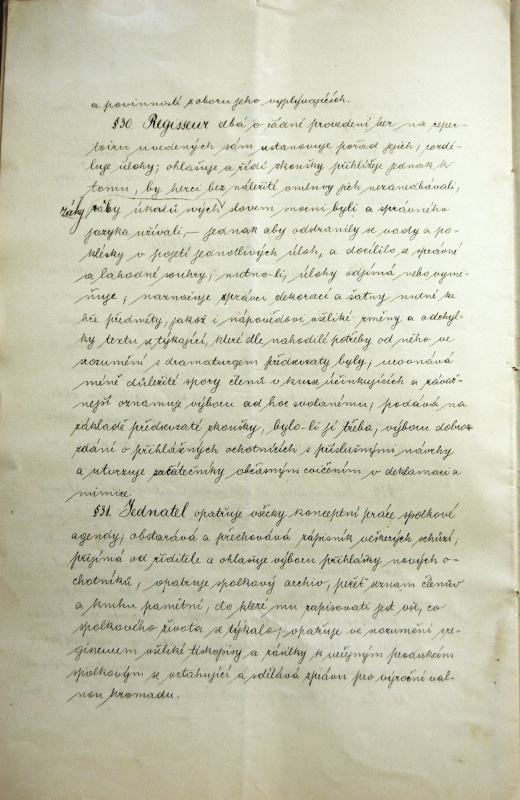 a povinností z oboru jeho vyplývajících.
§30. Regisseur dbá o řádné provedení her na reper-
toiru uvedených sám ustanovuje pořad jejich, rozdě-
luje úlohy; ohlašuje a řídí zkoušky přihlížeje jednak k
tomu, by herci bez náležité omluvy jich nezanedbávali,
by úkolů svých slovem mocni byli a správného
jazyka užívali, – jednak aby odstranily se vady a po-
klésky v pojetí jednotlivých úloh, a docílilo se správné
a lahodné souhry; nutno-li, úlohy odjímá nebo vymě-
ňuje; naznačuje správci dekorací a šatny nutné ke
hře předměty, jakož i nápovědovi veškeré změny a odchyl-
ky textu se týkající, které dle nahodilé potřeby od něho ve
srozumění s dramaturgem předsevzaty byly; urovnává
méně důležité spory členů v kuse účinkujících a závaž-
nější oznamuje výboru ad hoc svolanému; podává na
základě předsevzaté zkoušky, bylo-li jí třeba, výboru dobroz-
zdání o přihlášených ochotnících s příslušnými návrhy
a utvrzuje začátečníky občasným cvičením v deklamaci a
mimice.
§31. Jednatel opatřuje všecky konceptní práce spolkové
agendy; obstarává a přechovává zápisník veškerých schůzí,
přijímá od ředitele a ohlašuje výboru přihlášky nových o-
chotníků, opatruje spolkový archiv, pečet seznam členův
a knihu pamětní, do které mu zapisovati jest vše, co
spolkového života se týkalo; opatřuje ve srozumění s re-
gisseurem veškeré tiskopisy a zásilky k veřejným produkcím
spolkovým se vztahující a sdělává zprávu pro výroční val-
nou hromadu.